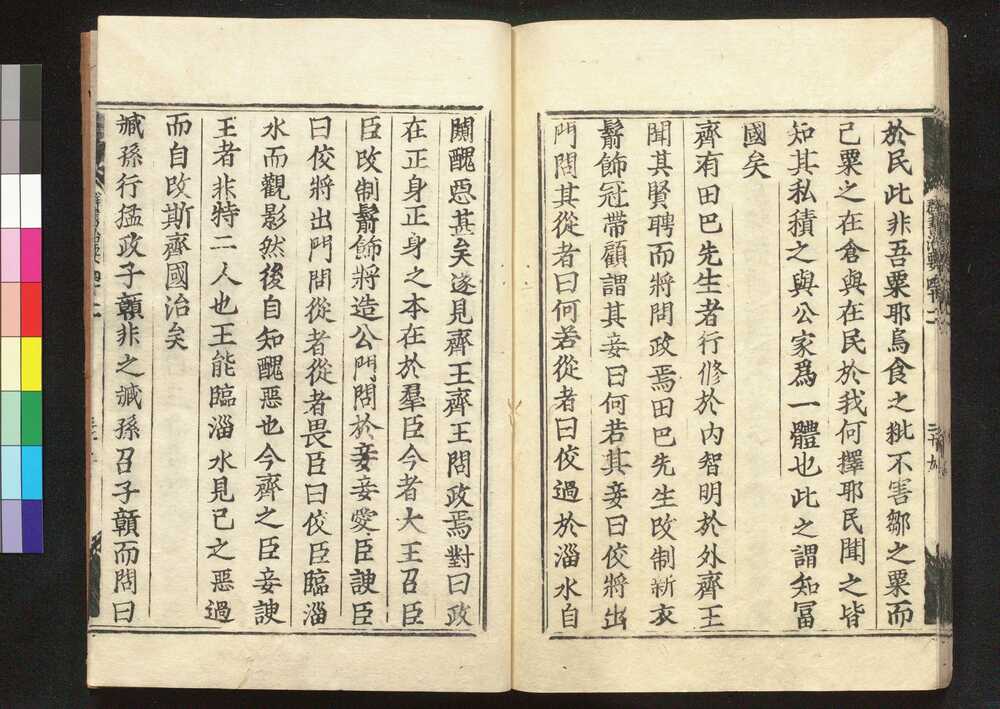 於民此非吾粟耶烏食之粃不害鄒之粟而
己粟之在倉與在民於我何擇耶民聞之皆
知其私積之與公家爲一體也此之謂知冨
國矣
齊有田巴先生者行修於内智明於外齊王
聞其賢聘而將問政焉田巴先生改制新衣
鬋飾冠帶顧謂其妾曰何若其妾曰佼將出
門問其從者曰何若從者曰佼過於淄水自
闚醜惡甚矣遂見齊王齊王問政焉對曰政
在正身正身之本在於羣臣今者大王召臣
臣改制鬋飾將造公門問於妾妾愛臣諛臣
曰佼將出門問從者從者畏臣曰佼臣臨淄
水而觀影然後自知醜惡也今齊之臣妾諛
王者非特二人也王能臨淄水見己之惡過
而自改斯齊國治矣
臧孫行猛政子贛非之臧孫召子贛而問曰